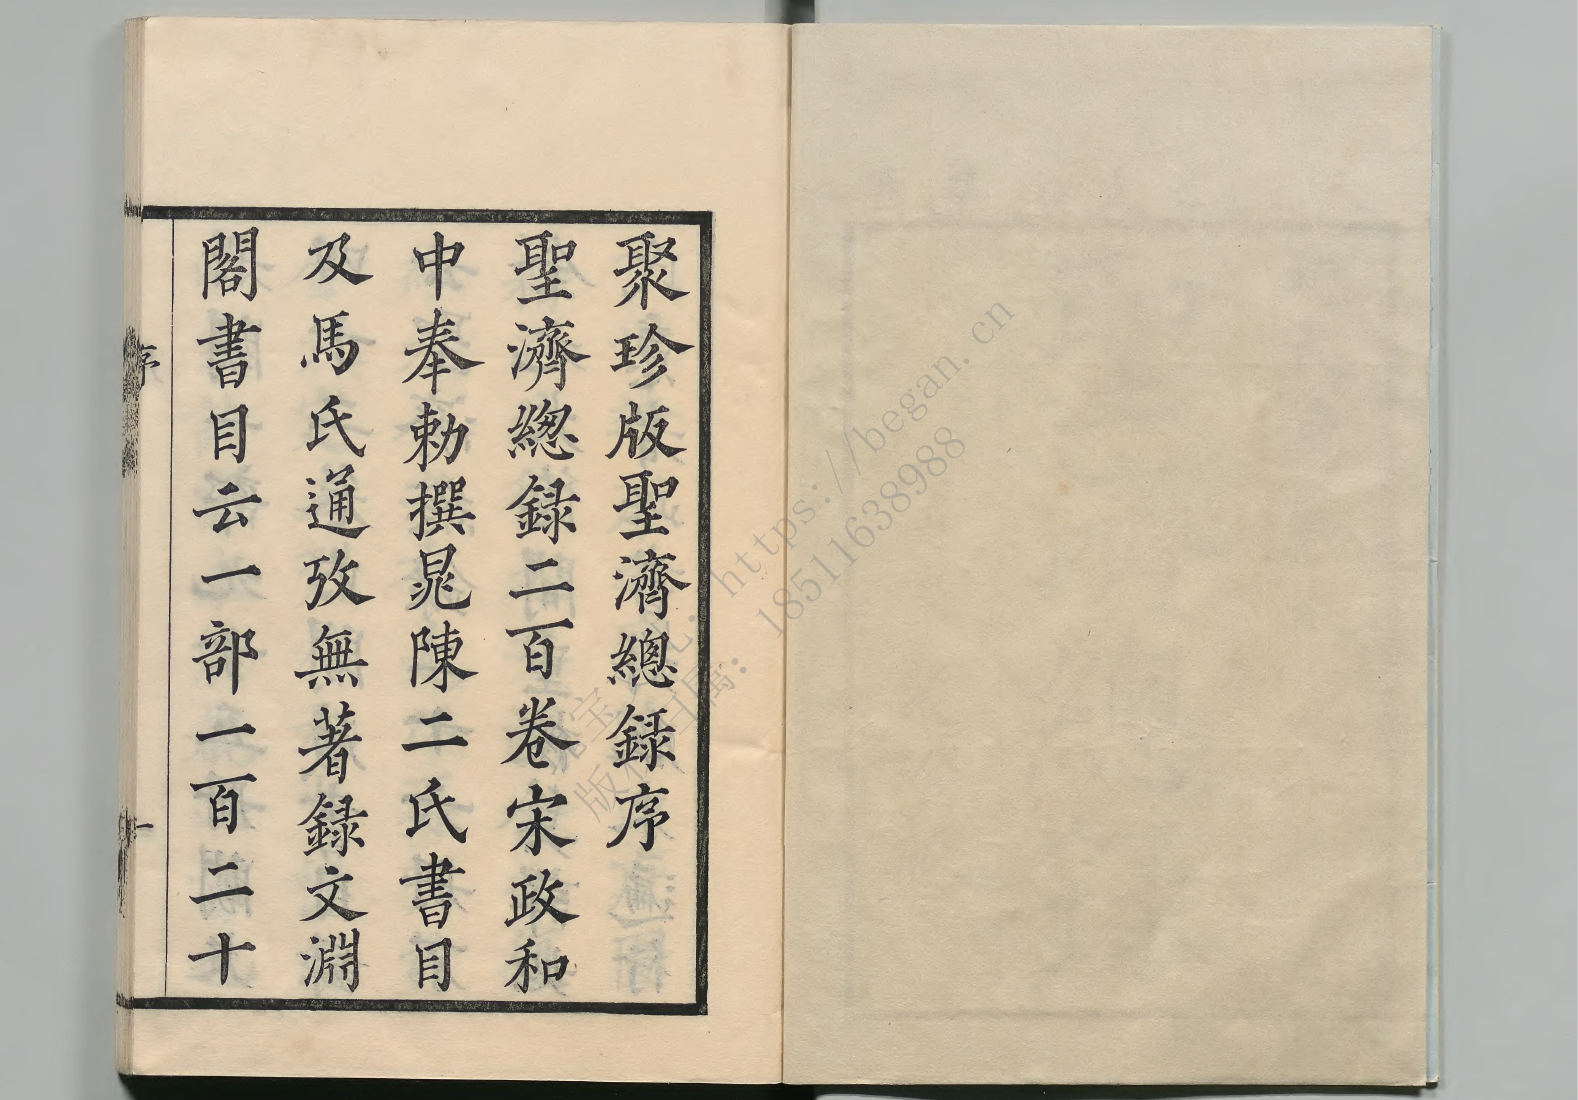 聚珍版聖濟總録序
聖濟緫録二百卷宋政和
中奉勅撰晁陳二氏書目
及馬氏通攷無著録文淵
閣書目云一部一百二十
序
一
https://began.cn
18511638988